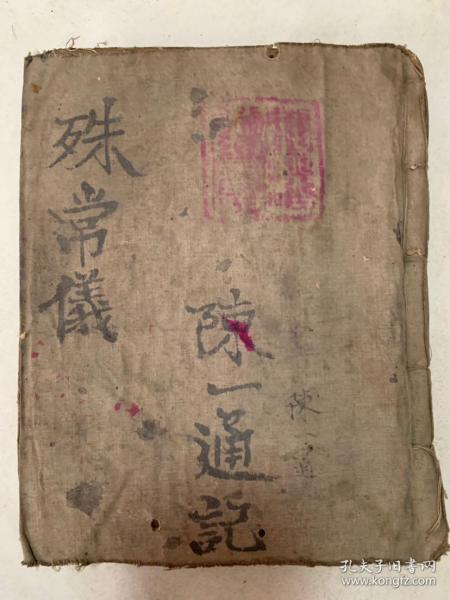 殊常儀
陳一通記
陳一通
孔夫子旧书网
www.kongfz.com